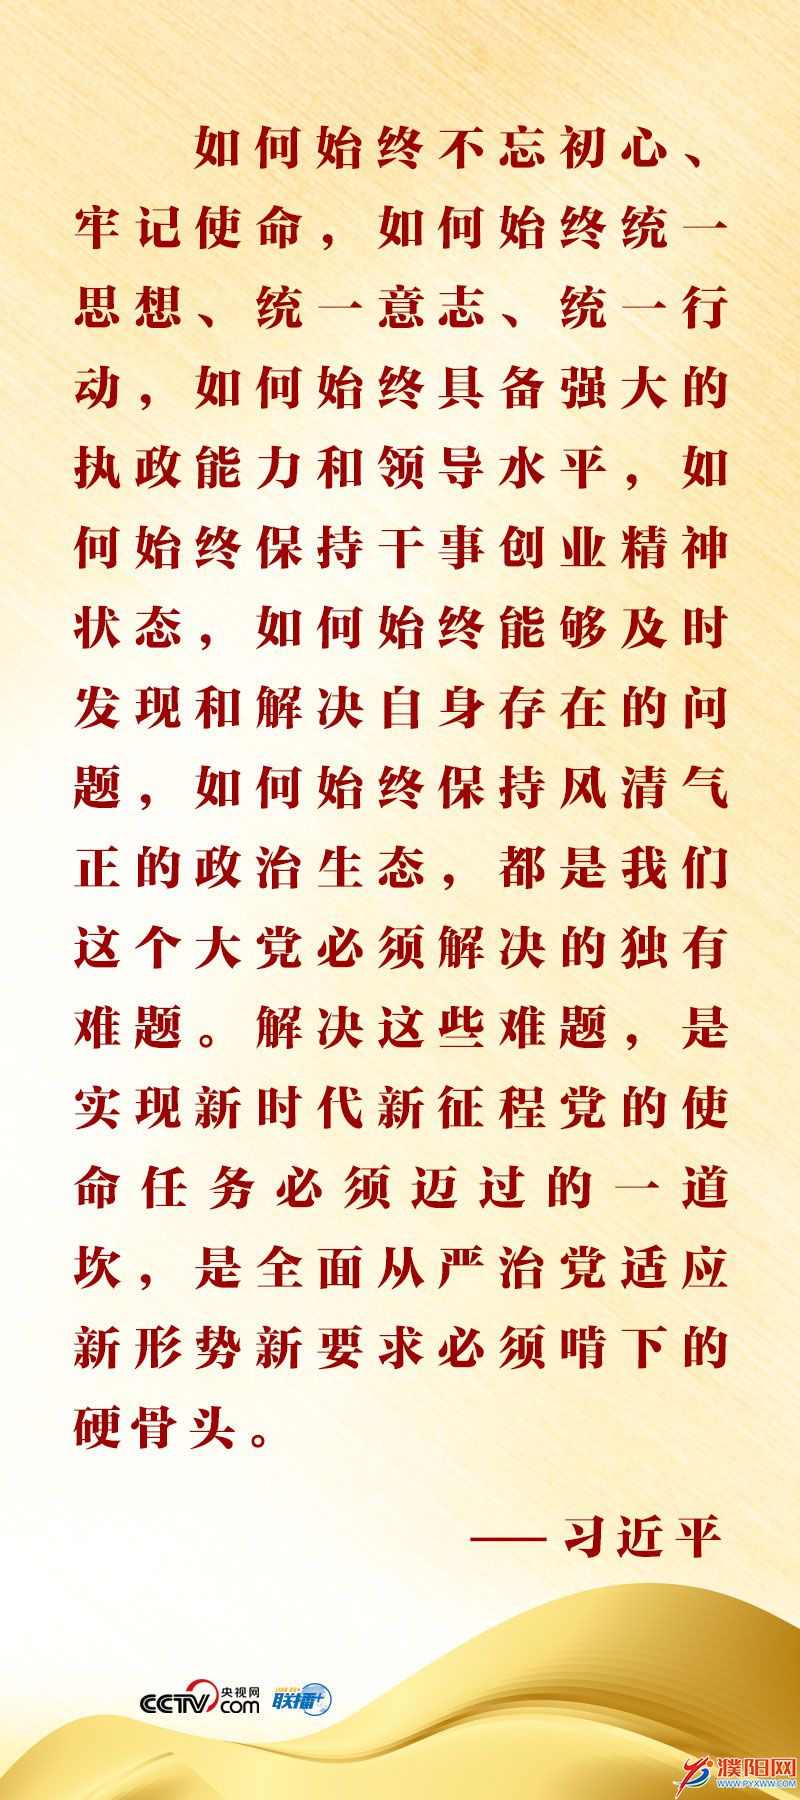 如何始终不忘初心、
牢记使命，如何始终统一
思想、统一意志、统一行
动，如何始终具备强大的
执政能力和领导水平，如
何始终保持干事创业精神
状态，如何始终能够及时
发现和解决自身存在的问
题，如何始终保持风清气
正的政治生态，都是我们
这个大党必须解决的独有
难题。解决这些难题，是
实现新时代新征程党的使
命任务必须迈过的一道
坎，是全面从严治党适应
新形势新要求必须啃下的
硬骨头。
——习近平
CCTV 央视网
com
联播+
濮阳网
WWW.PYXWW.COM